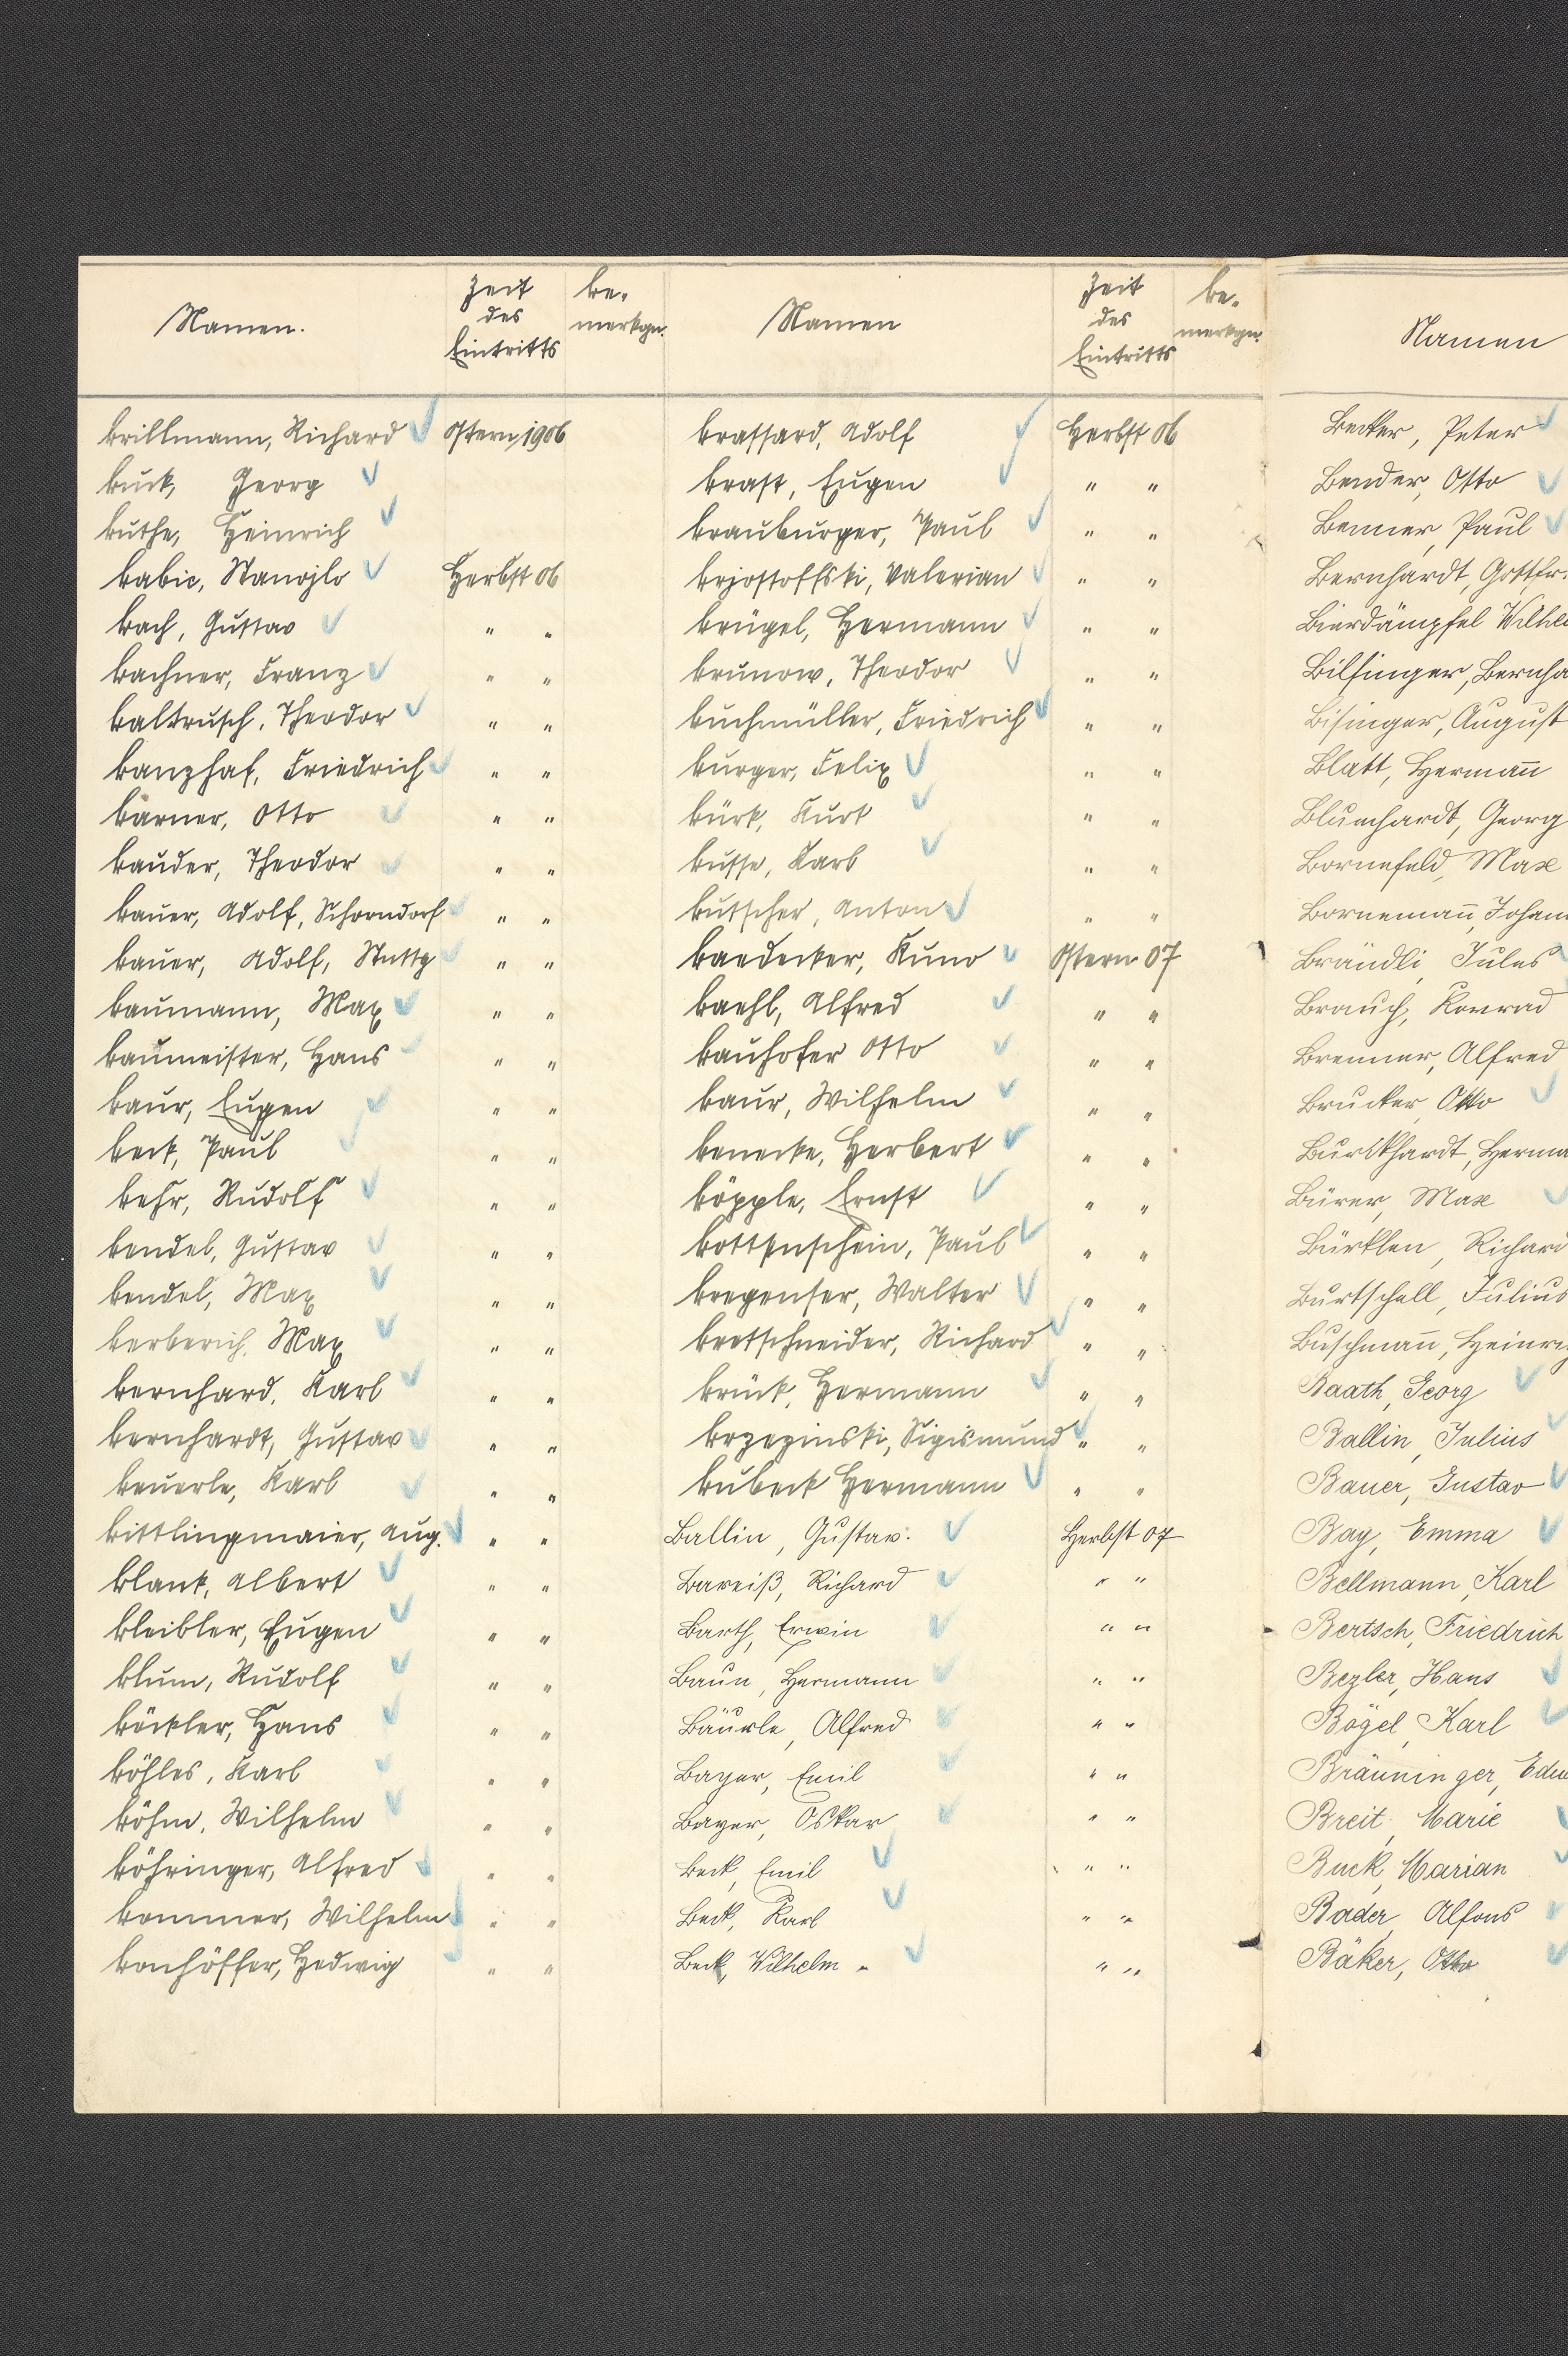 Namen.
Zeit des Eintritts
Be-merkgn.
Brillmann, Richard Ostern 1906
Buck, Georg
Buthe, Heinrich
Babic, Stanojlo Herbst 06
Bach, Gustav " "
Bachner, Franz " "
Baltrusch, Theodor " "
Banzhaf, Friedrich " "
Barner, Otto " "
Bauder, Theodor " "
Bauer, Adolf, Schorndorf " "
Bauer, Adolf, Stuttg " "
Baumann, Max " "
Baumeister, Hans " "
Baur, Eugen " "
Beck, Paul " "
Behr, Rudolf " "
Bendel, Gustav " "
Bendel, Max " "
Berberich, Max " "
Bernhard, Karl " "
Bernhardt, Gustav " "
Beuerle, Karl " "
Bittlingmaier, Aug. " "
Blank, Albert " "
Bleibler, Eugen " "
Blum, Rudolf " "
Böckler, Hans " "
Böhles, Karl " "
Böhm, Wilhelm " "
Böhringer, Alfred " "
Bommer, Wilhelm " "
Bonhöffer, Hedwig " "
Namen
Zeit des Eintritts
Be-merkgn.
Brassard, Adolf Herbst 06
Brast, Eugen " "
Brauburger, Paul " "
Valerian " "
Brügel, Hermann " "
Brunow, Theodor " "
Buchmüller, Friedrich " "
Burger, Felix " "
Bürk, Kurt " "
Busse, Karl " "
Butscher, Anton " "
Baedecker, Kuno Ostern 07
Baehl, Alfred " "
Bauhofer Otto " "
Baur, Wilhelm " "
Benecke, Herbert " "
Böpple, Ernst " "
Paul " "
Bregenser, Walter " "
Bretschneider, Richard " "
Brück, Hermann " "
Brzezinski, Sigismund " "
Bubeck Hermann " "
Ballin, Gustav. Herbst 07
Bareiß, Richard " "
Barth, Erwin " "
Baun, Hermann " "
Bäurle, Alfred " "
Bayer, Emil " "
Bayer, Oskar " "
Beck, Emil " "
Beck, Karl " "
Beck, Wilhelm " "
Namen
Becker, Peter
Bender, Otto
Benner, Paul
Bernhardt, Gottfr.
Bierdämpfel Wilhel
Bilfinger, Bernha
Bisinger, August
Blatt, Herman̅
Blumhardt, Georg
Bornefeld, Max
Borneman̅, Johan
Brändli, Jules
Brauch, Konrad
Brenner, Alfred
Brucker, Otto
Burkhardt, Herma
Bürer, Max
Bürklen, Richard
Burtschell, Julius
Buschman̅, Heinr
Baath, Georg
Ballin, Julius
Bauer, Gustav
Bay, Emma
Bellmann, Karl
Bertsch, Friedrich
Bezler, Hans
Bögel, Karl
Bräuninger, Edu
Breit, Marie
Buck, Marian
Bader, Alfons
Bäker, Otto